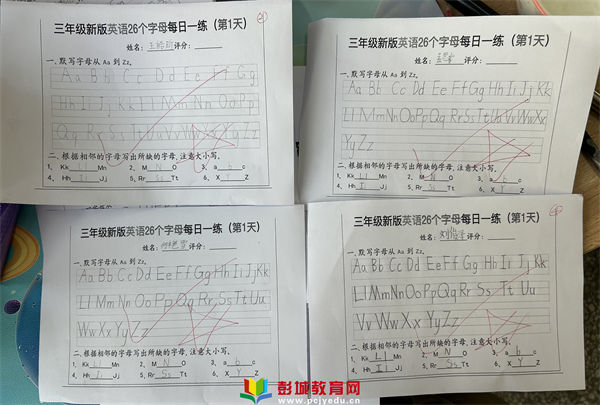 三年级新版英语26个字母每日一练（第1天）
姓名： 评分：
一、默写字母从 Aa 到 Zz。
Aa Bb Cc Dd Ee Ff Gg
Hh Ii Jj Kk Ll Mm Nn Oo Pp
Qq Rr Ss Tt Uu Vv Ww Xx Yy Zz
二、根据相邻的字母写出所缺的字母，注意大小写。
1、 Kk Ll Mn 2、 M N O 3、 a b c
4、 Hh Ii Jj 5、 Rr Ss Tt 6、 X Y Z
三年级新版英语26个字母每日一练（第1天）
姓名： 评分：
一、默写字母从 Aa 到 Zz。
Aa Bb Cc Dd Ee Ff Gg Hh Ii Jj Kk
Ll Mm Nn Oo Pp Qq Rr Ss Tt Uu Vv Ww Xx
Yy Zz
二、根据相邻的字母写出所缺的字母，注意大小写。
1、 Kk Ll Mn 2、 M N O 3、 a b c
4、 Hh Ii Jj 5、 Rr Ss Tt 6、 X Y Z
三年级新版英语26个字母每日一练（第1天）
姓名： 评分：
一、默写字母从 Aa 到 Zz。
Aa Bb Cc Dd Ee Ff Gg Hh Ii Jj Kk
Ll Mm Nn Oo Pp Qq Rr Ss Tt Uu
Vv Ww Xx Yy Zz
二、根据相邻的字母写出所缺的字母，注意大小写。
1、 Kk Ll Mn 2、 M N O 3、 a b c
4、 Hh Ii Jj 5、 Rr Ss Tt 6、 X Y Z
三年级新版英语26个字母每日一练（第1天）
姓名： 评分：
一、默写字母从 Aa 到 Zz。
Aa Bb Cc Dd Ee Ff Gg Hh Ii Jj Kk
Ll Mm Nn Oo Pp Qq Rr Ss Tt Uu
Vv Ww Xx Yy Zz
二、根据相邻的字母写出所缺的字母，注意大小写。
1、 Kk Ll Mn 2、 M N O 3、 a b c
4、 Hh Ii Jj 5、 Rr Ss Tt 6、 X Y Z
彭城教育网
www.pcjyedu.cn